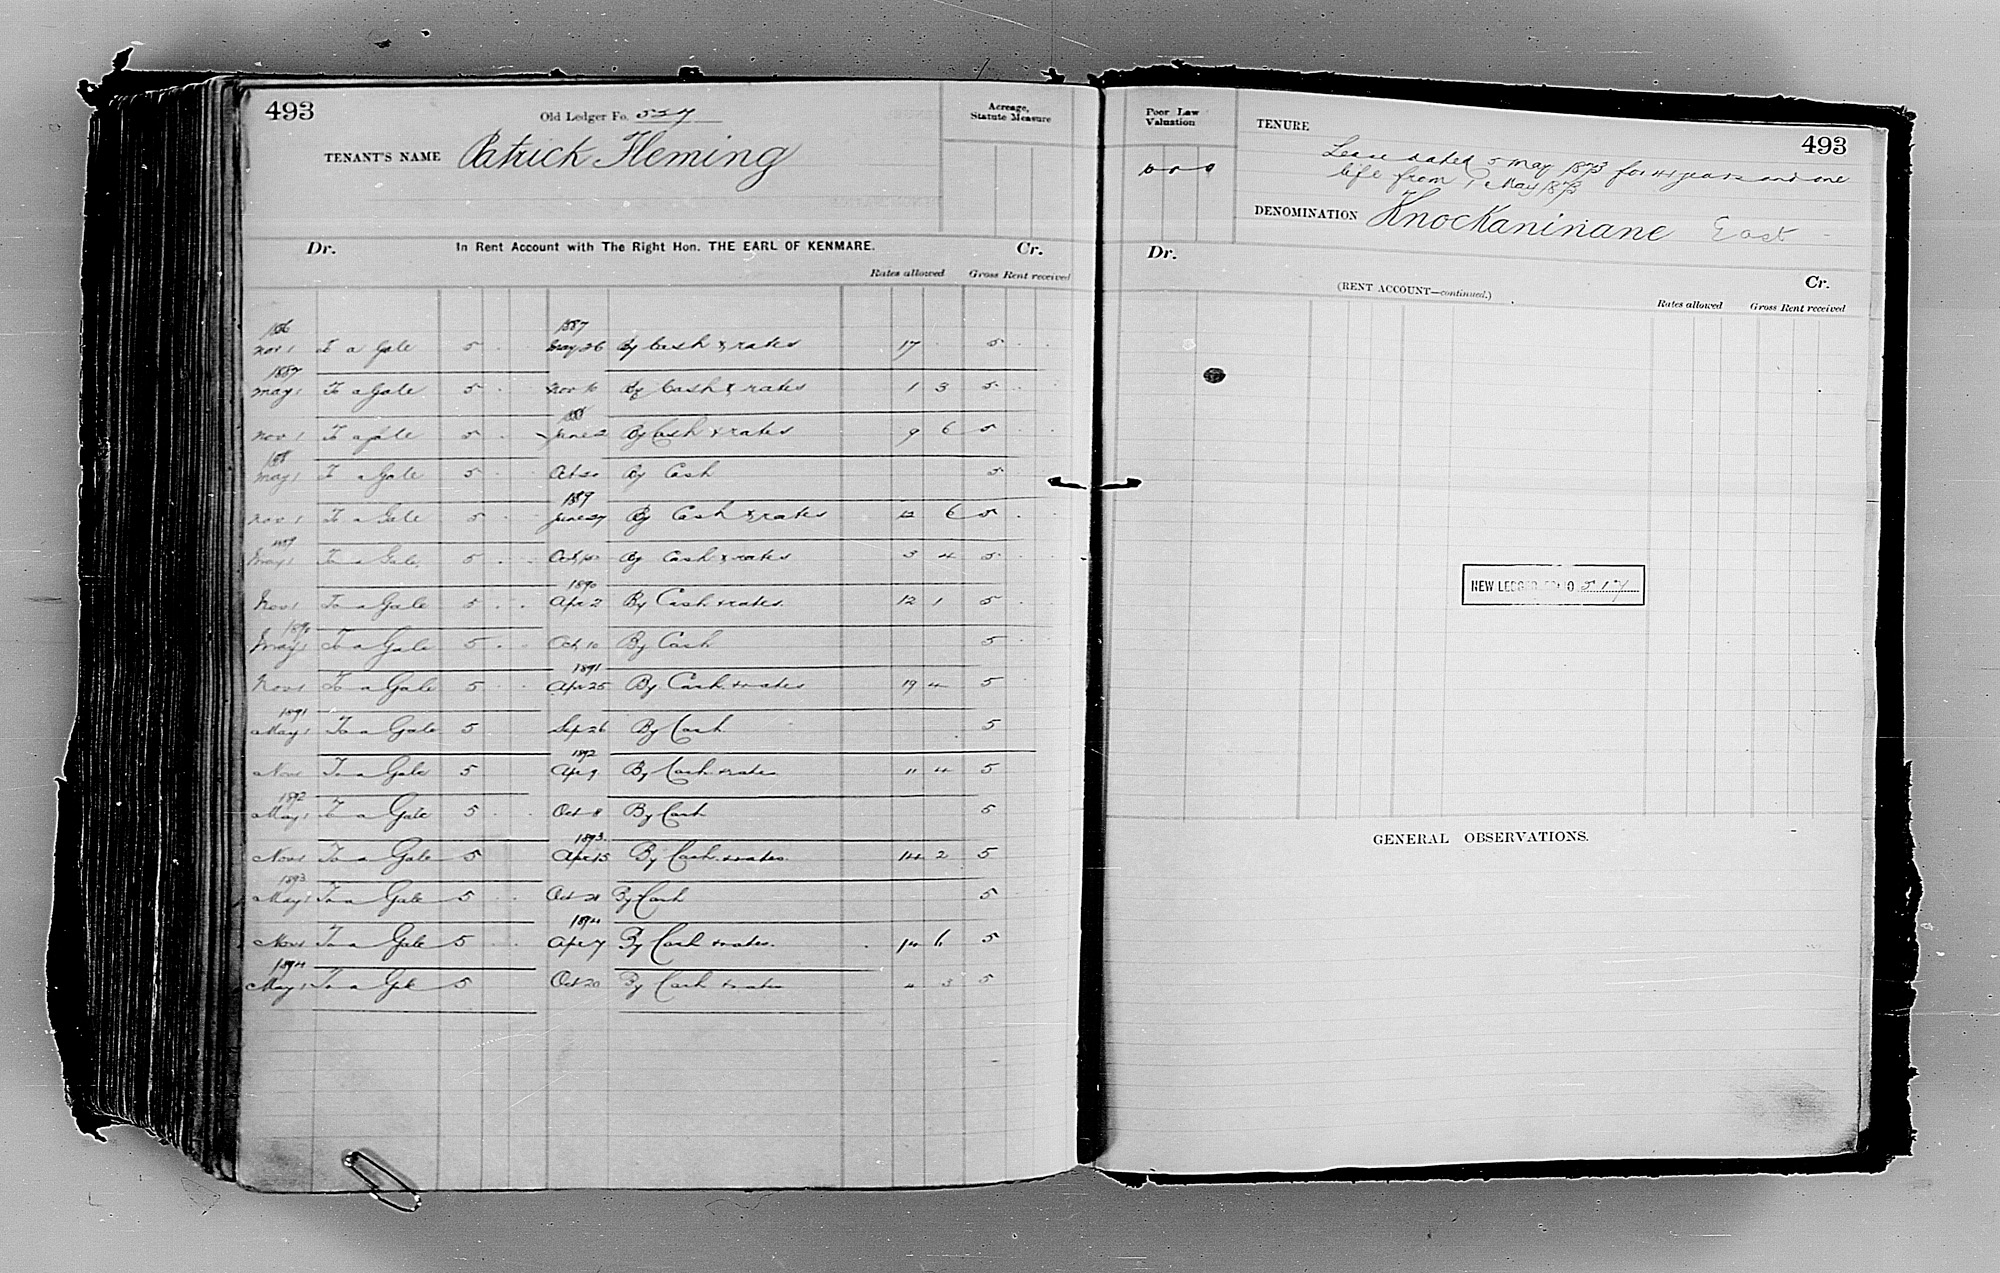 493
Old Ledger Fo. 557
TENANT'S NAME Patrick Fleming
Acreage,
Statute Measure
Dr. In Rent Account with The Right Hon. THE EARL OF KENMARE. Cr.
Rates allowed Gross Rent received
1886 1887
Nov 1 To a Gale 5 May 26 By Cash & rates 17 5
1887
May 1 To a Gale 5 Nov 10 By Cash & rates 1 3 5
1888
Nov 1 To a gale 5 June 2 By Cash & rates 9 6 5
1888
May 1 To a Gale 5 Oct 20 By Cash 5
1889
Nov 1 To a Gale 5 June 27 By Cash & rates 12 6 5
1889
May 1 To a Gale 5 Oct 10 By Cash & rates 3 4 5
1890
Nov 1 To a Gale 5 Apr 2 By Cash & rates 12 1 5
1890
May 1 To a Gale 5 Oct 10 By Cash 5
1891
Nov 1 To a Gale 5 Apr 25 By Cash & rates 19 4 5
1891
May 1 To a Gale 5 Sep 26 By Cash 5
1892
Nov 1 To a Gale 5 Apr 9 By Cash & rates 11 4 5
1892
May 1 To a Gale 5 Oct 8 By Cash 5
1893
Nov 1 To a Gale 5 Apr 15 By Cash & rates 14 2 5
1893
May 1 To a Gale 5 Oct 21 By Cash 5
1894
Nov 1 To a Gale 5 Apr 7 By Cash & rates. 14 6 5
1894
May 1 To a Gale 5 Oct 20 By Cash & rates 4 3 5
Poor Law
Valuation
TENURE
493
Lease dated 5 May 1873 for 41 years and one
life from 1 May 1873
DENOMINATION Knockaninane East
Dr. Cr.
(RENT ACCOUNT—continued.)
Rates allowed Gross Rent received
NEW LEDGER FOLIO 517
GENERAL OBSERVATIONS.